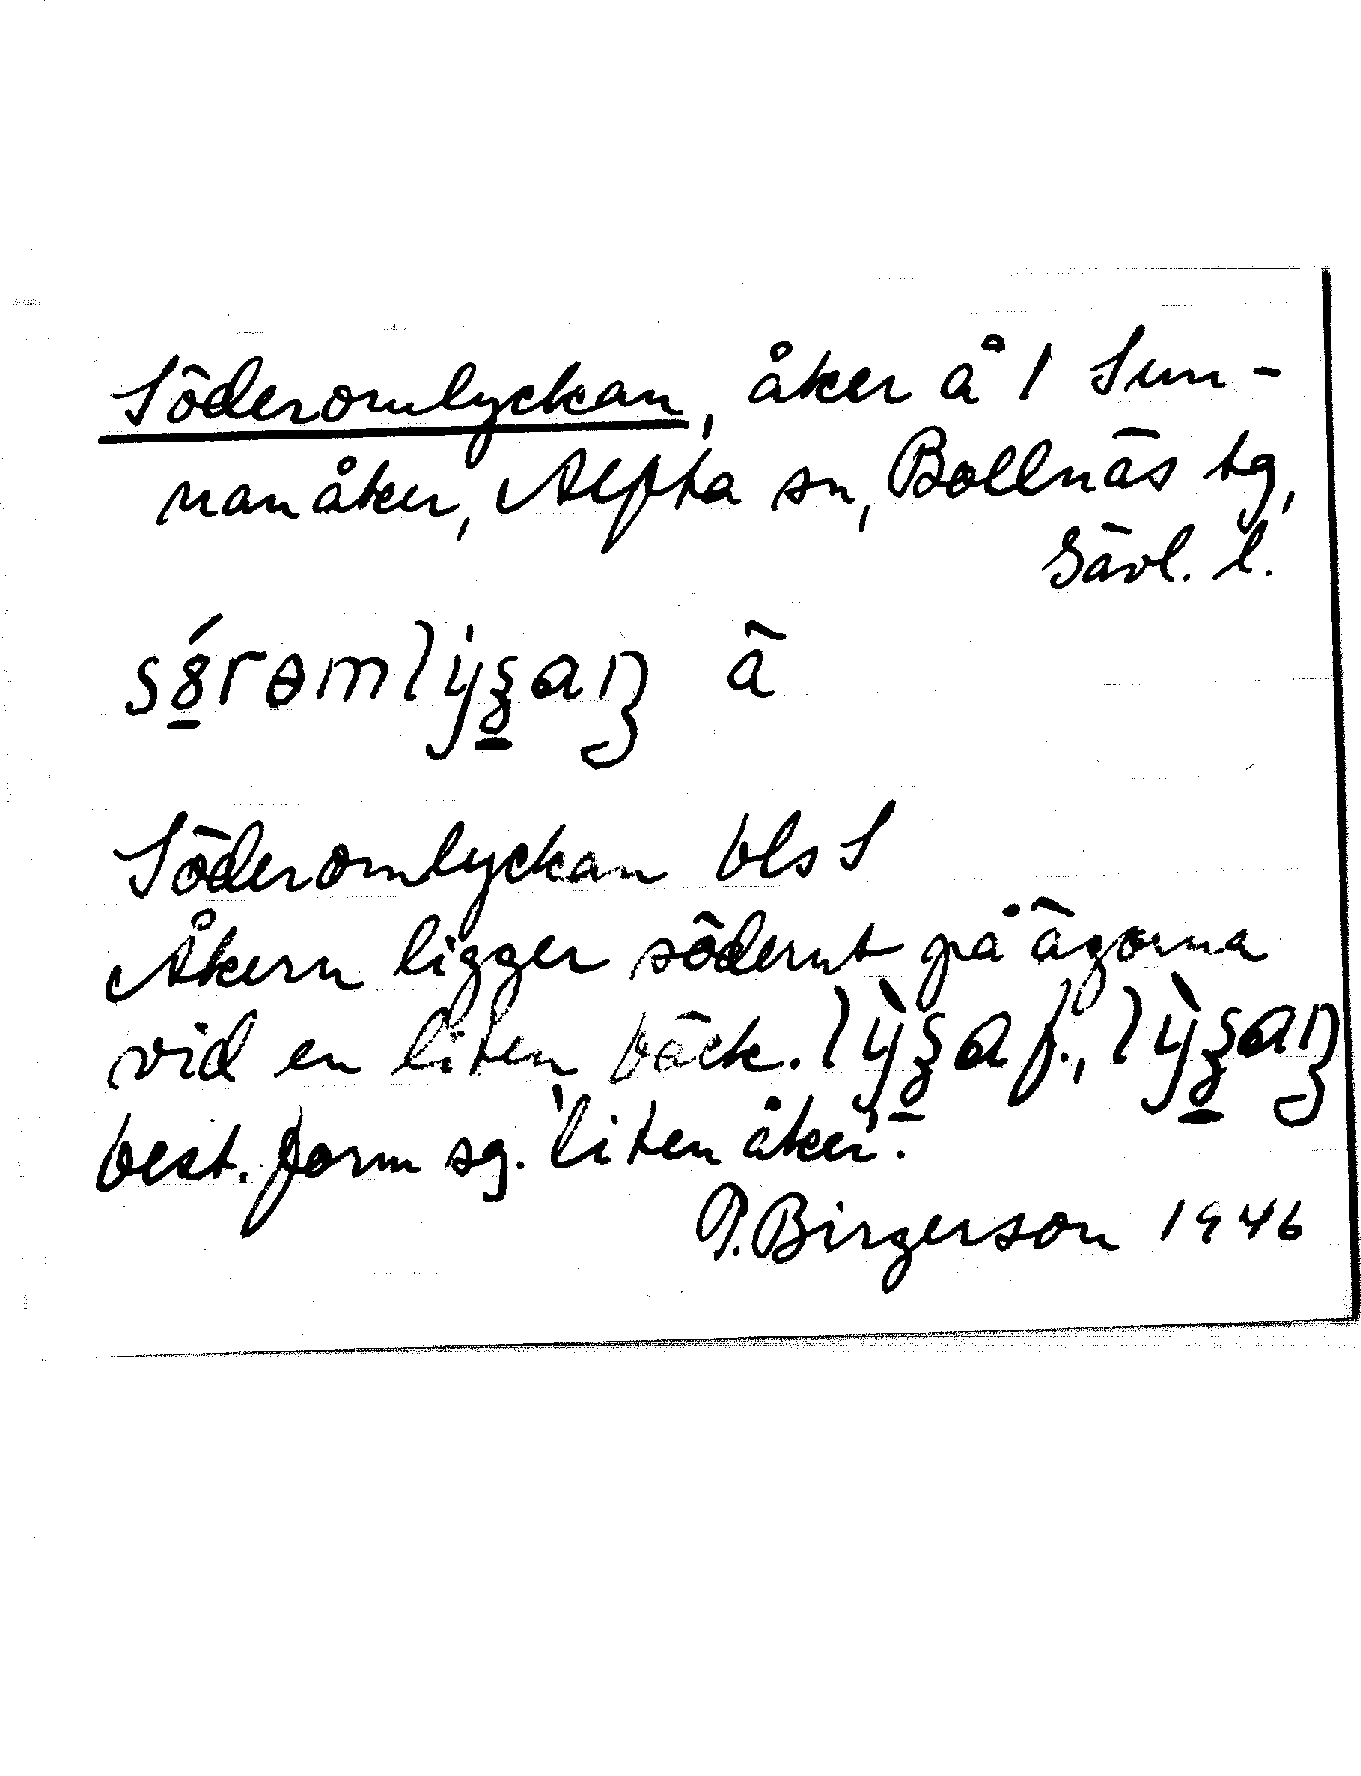 Söderomlyckan, åker å 1 Sun-
nanåker, Alfta sn, Bollnäs tg,
Gävl. l.
ä
Söderomlyckan bls S
Åkern ligger söderut på ägorna
vid en liten bäck. f.,
best. form sg. 'liten åker'.
P. Birgerson 1946